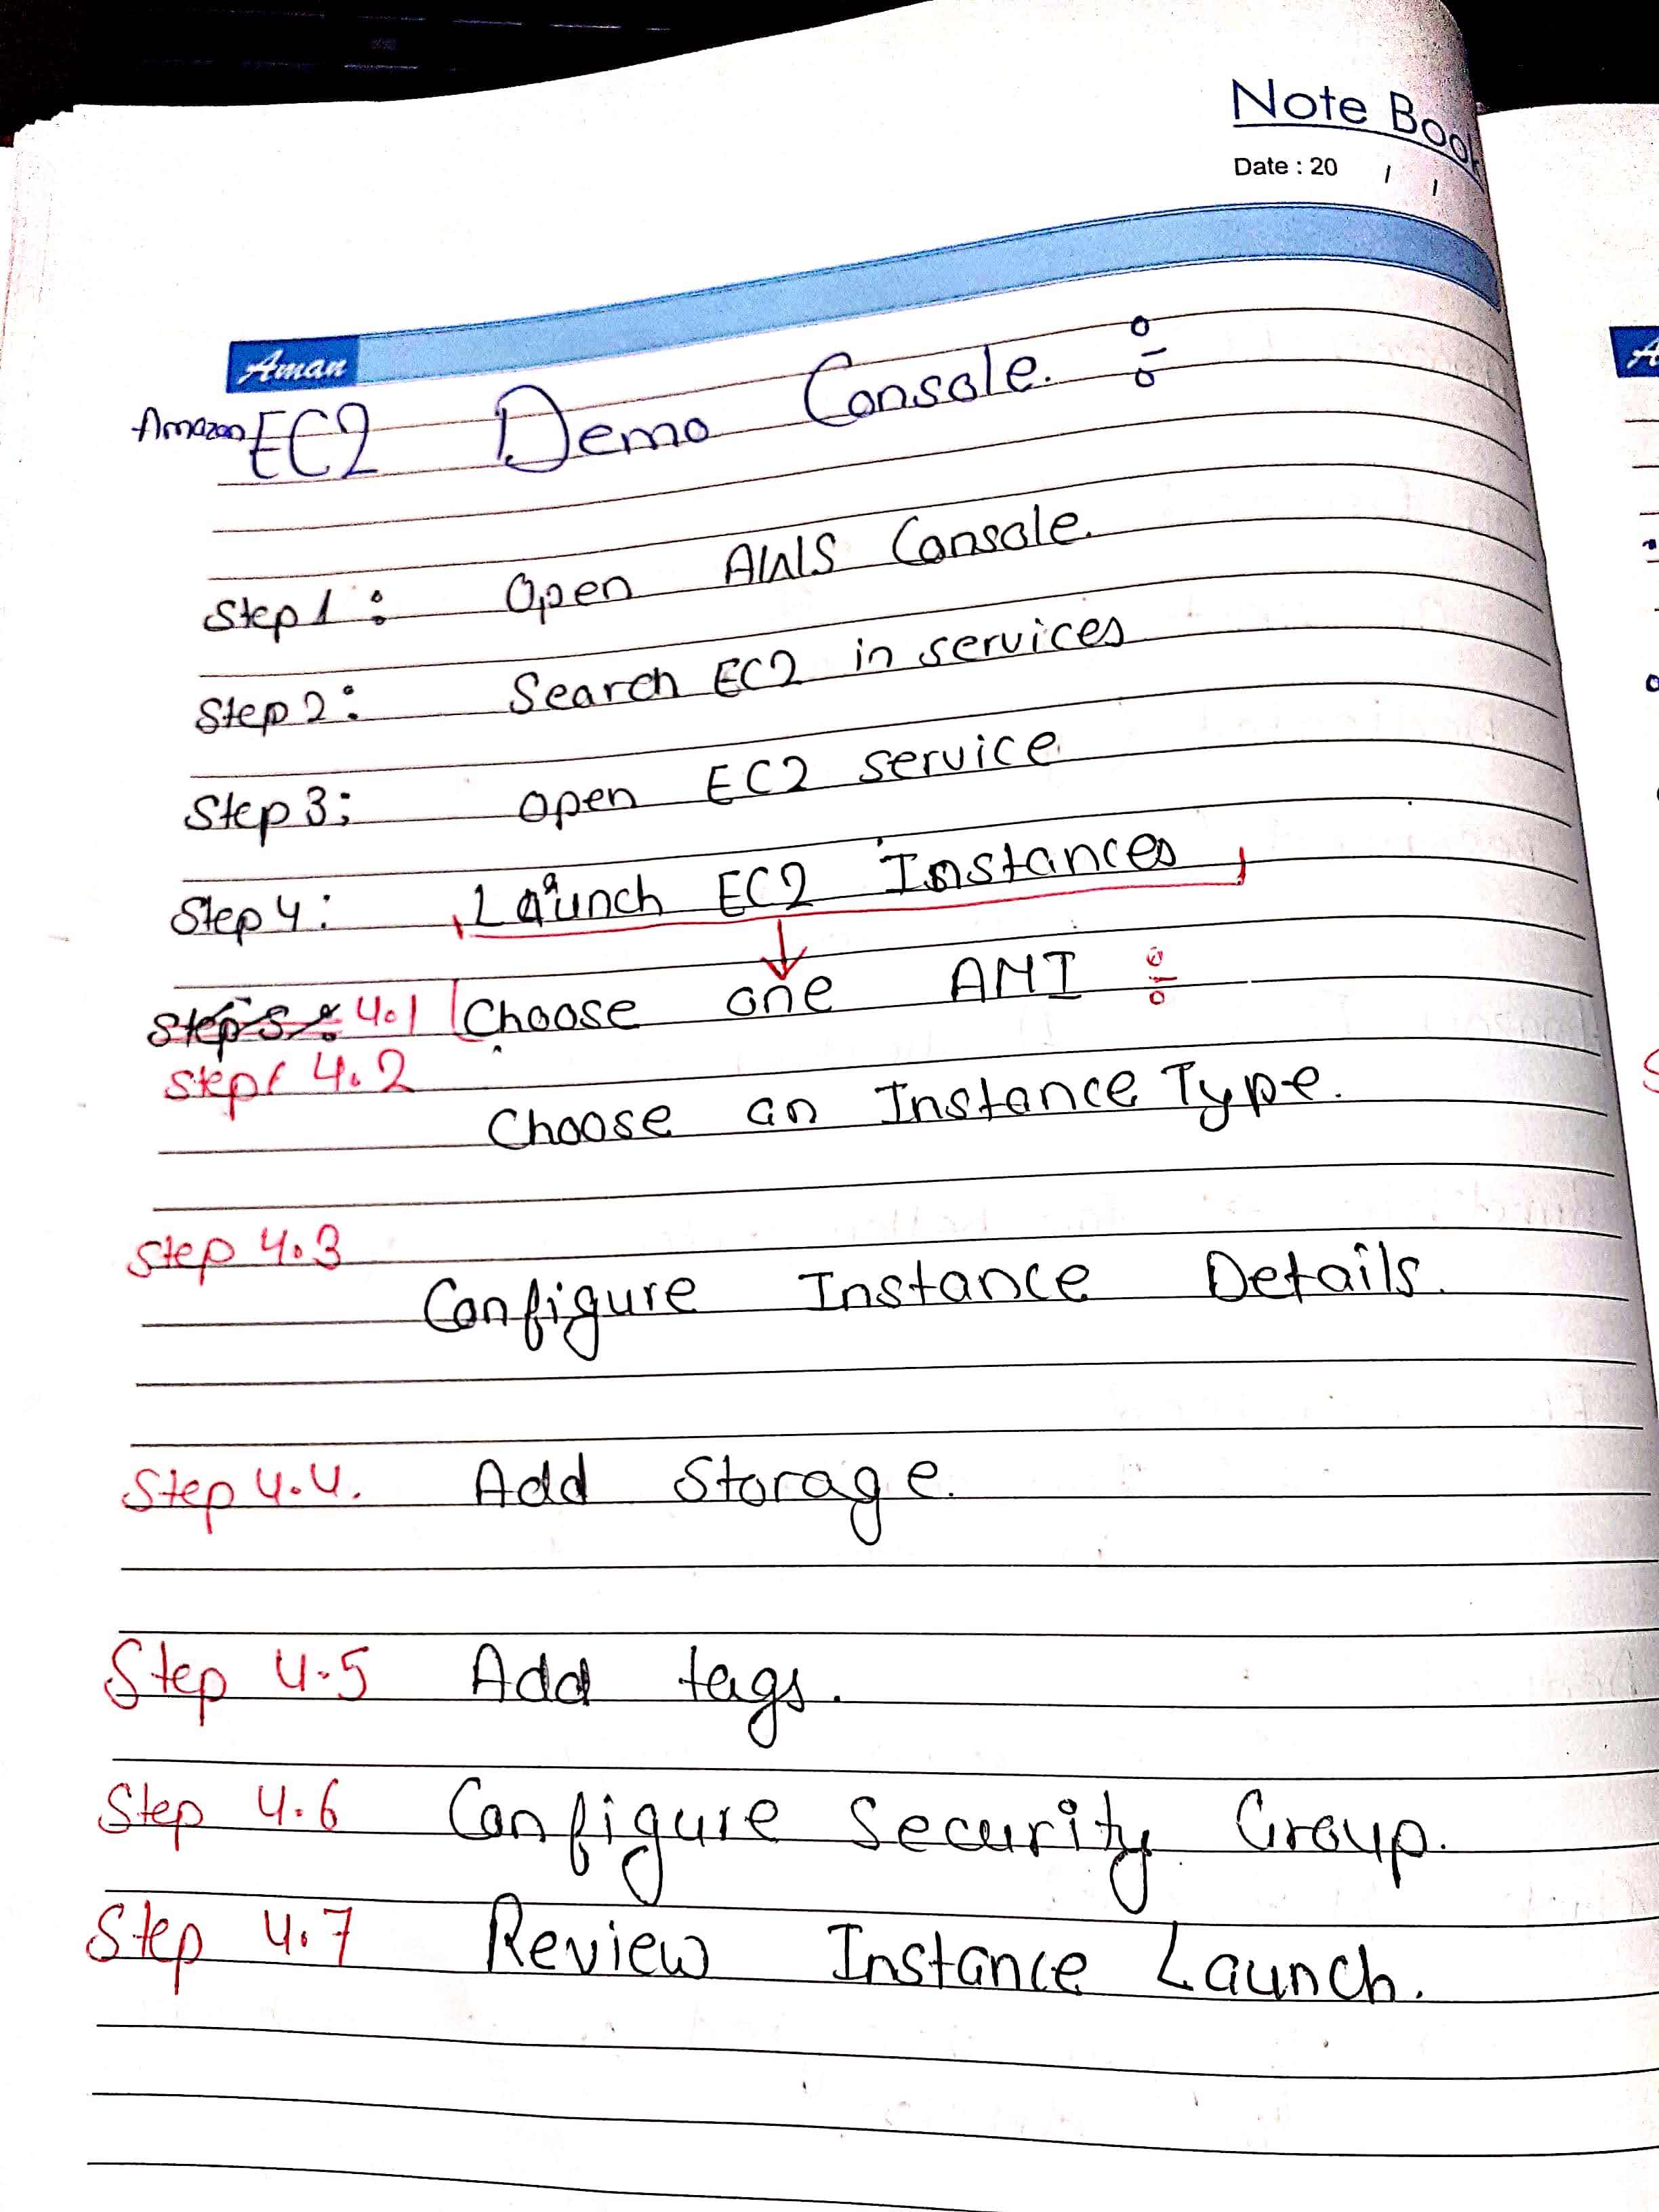 Note Book
Date : 20 / /
Aman
Amazon EC2 Demo Console. ÷
Step 1 : Open AWS Console.
Step 2 : Search EC2 in services
Step 3 : Open EC2 service
Step 4 : Launch EC2 Instances
Step 5 : 4.1 Choose one AMI ÷
Step 4.2
Choose an Instance Type.
Step 4.3
Configure Instance Details.
Step 4.4. Add Storage.
Step 4.5 Add tags.
Step 4.6 Configure Security Group.
Step 4.7 Review Instance Launch.